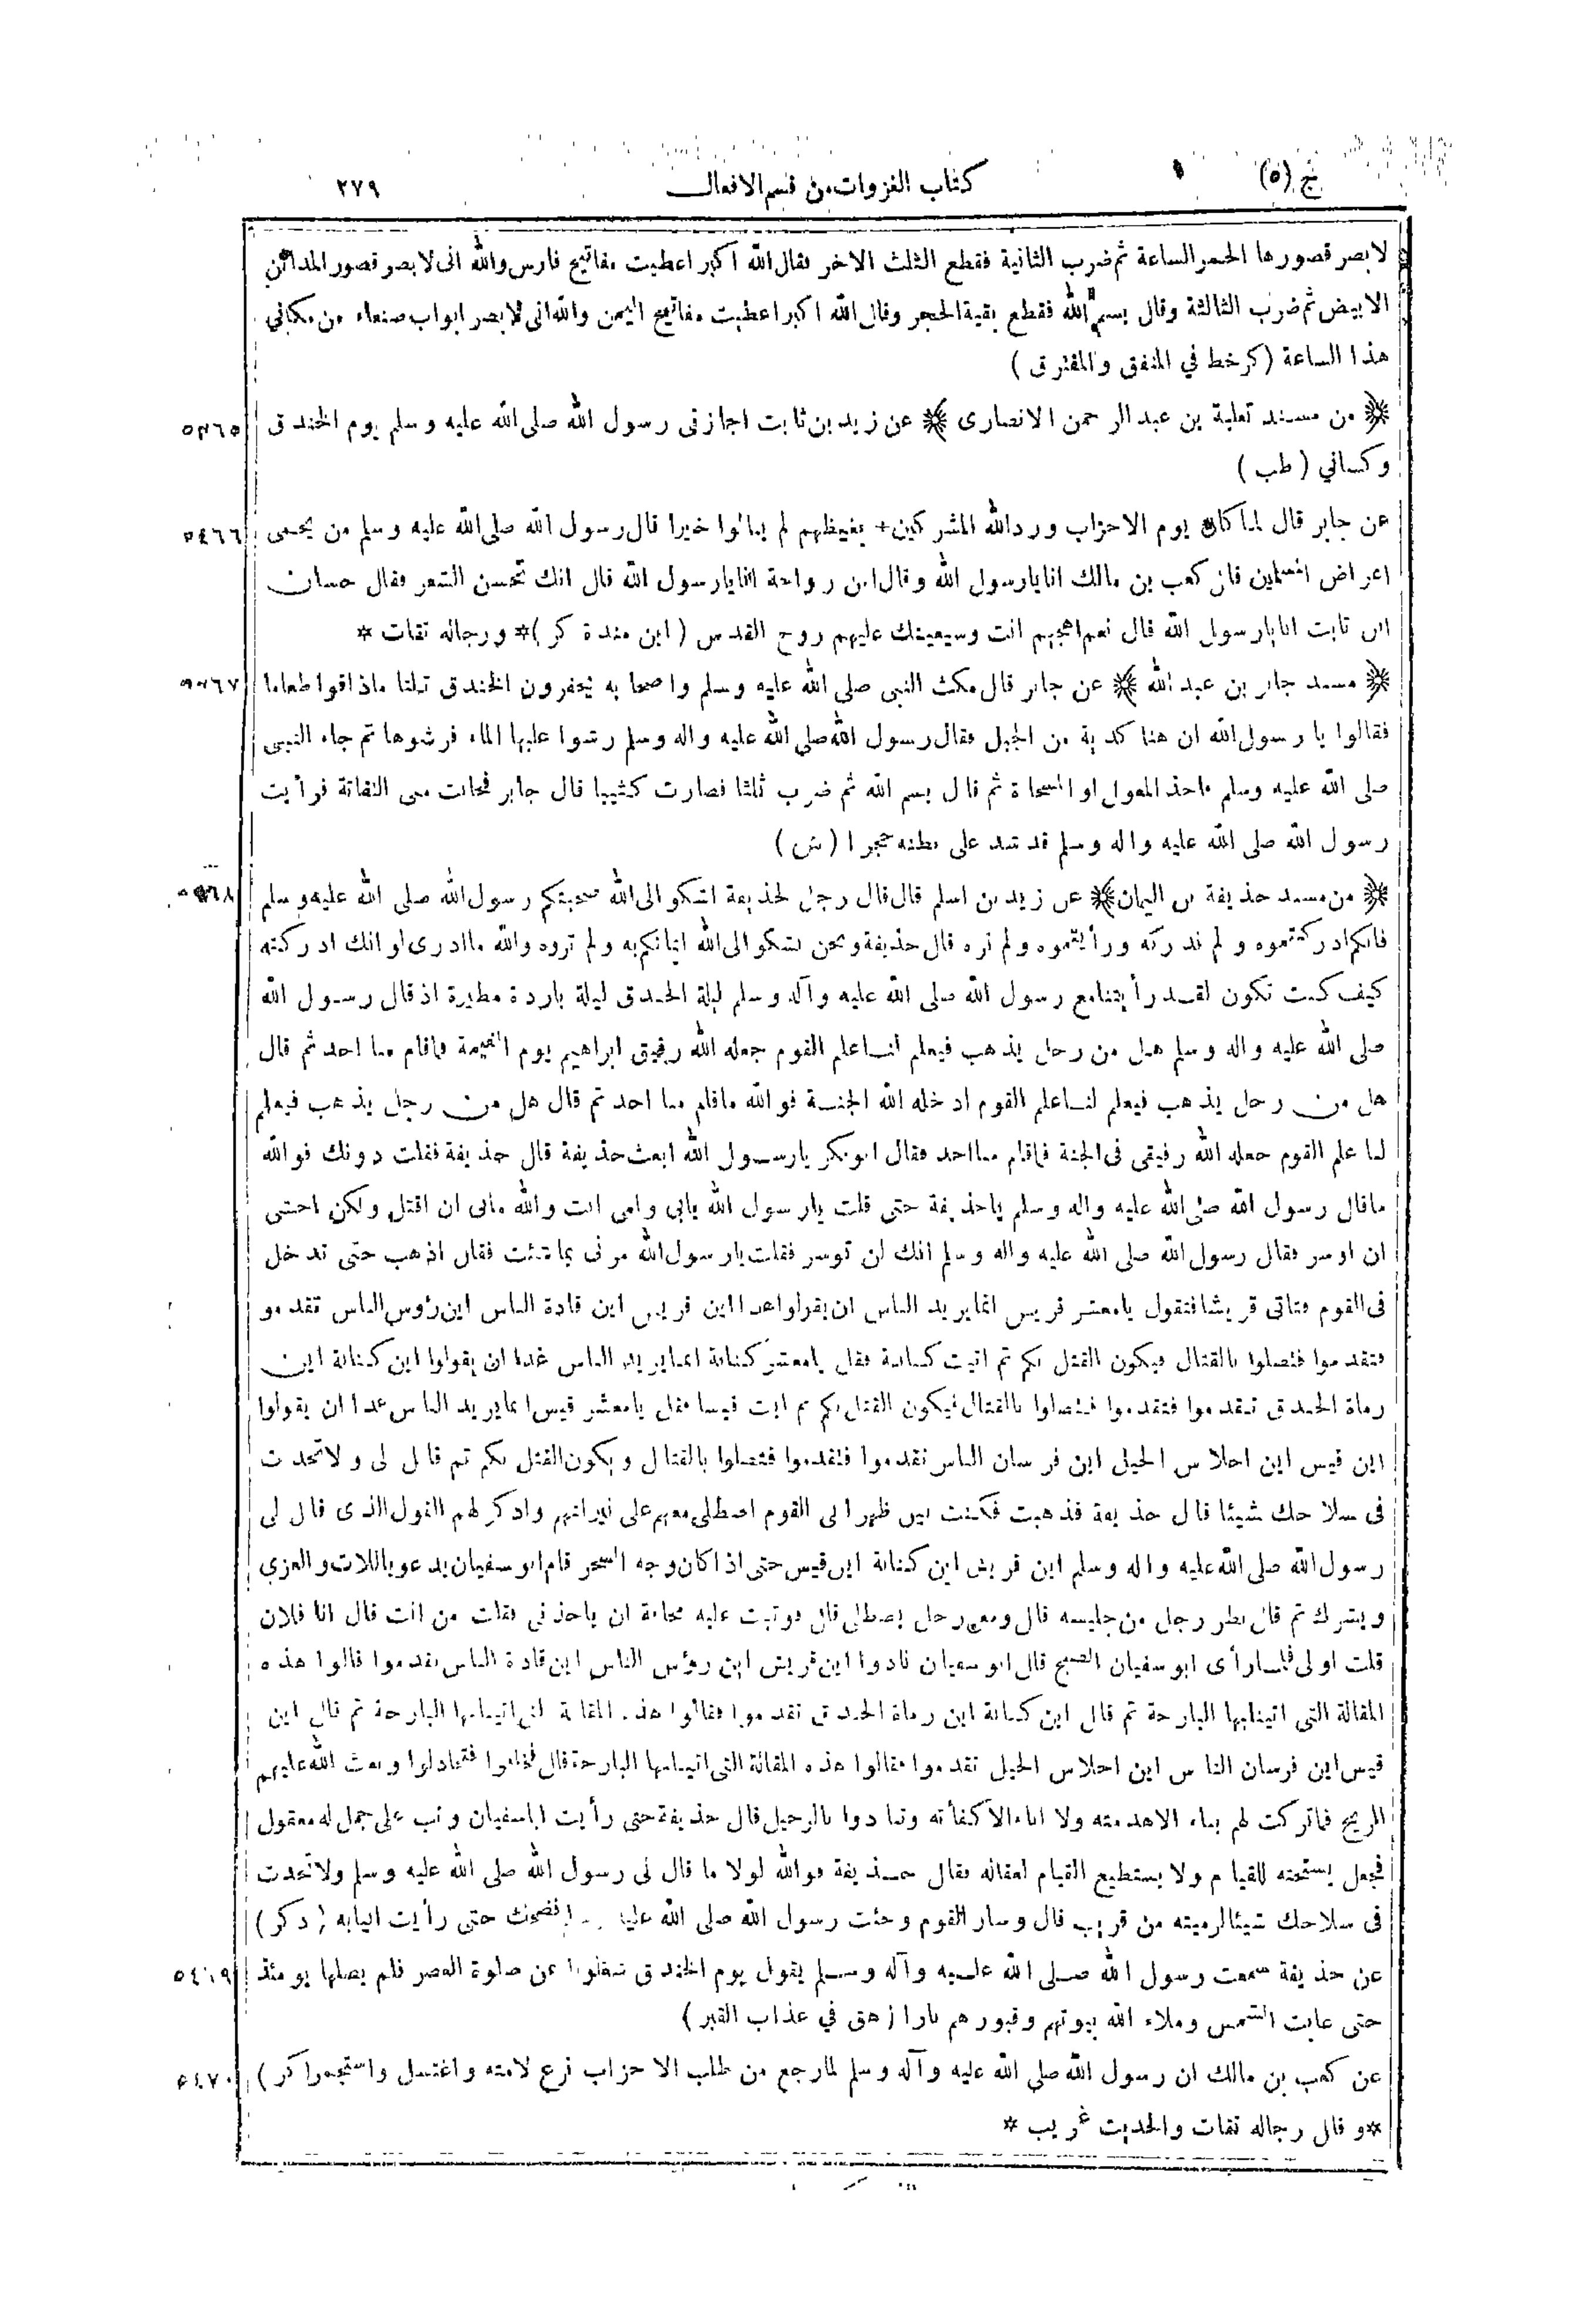 ج (٥)
كتاب الغزوات من قسم الافعال
٢٧٩
لا بصر قصورها الحمر الساعة ثم ضرب الثانية فقطع الثلث الاخر فقال الله اكبر اعطيت مفاتيح فارس والله انى لا بصر قصور المدائن
الابيض ثم ضرب الثالثة وقال بسم الله فقطع بقية الحجر وقال الله اكبر اعطيت مفاتيح اليمن والله انى لا بصر ابواب صنعاء من مكاني
هذا الساعة (كر خط في المتفق والمفترق)
من مسند ثعلبة بن عبد الرحمن الانصارى عن زيد بن ثابت اجازنى رسول الله صلى الله عليه وسلم يوم الخندق
وكساني (طب)
عن جابر قال لما كان يوم الاحزاب ورد الله المشركين + بغيظهم لم ينالوا خيرا قال رسول الله صلى الله عليه وسلم من يحمى ٥٤٦٦
اعراض المسلمين قال كعب بن مالك انا يا رسول الله وقال ابن رواحة انا يارسول الله قال انك تحسن الشعر فقال حسان
ابن ثابت انا يارسول الله قال نعم اهجهم انت وسيعينك عليهم روح القدس (ابن مندة كر) * ورجاله ثقات *
مسند جابر بن عبد الله عن جابر قال مكث النبى صلى الله عليه وسلم واصحا به يحفرون الخندق ثلثا ماذاقوا طعاما
فقالوا يا رسول الله ان هنا كدية من الجبل فقال رسول الله صلى الله عليه واله وسلم رشوا عليها الماء فرشوها ثم جاء النبى
صلى الله عليه وسلم فاخذ المعول او المسحاة ثم قال بسم الله ثم ضرب ثلثا فصارت كثيبا قال جابر فحانت منى التفاتة فرأيت
رسول الله صلى الله عليه واله وسلم قد شد على بطنه حجرا (ش)
من مسند حذيفة بن اليمان عن زيد بن اسلم قال قال رجل لحذيفة اشكو الى الله صحبتكم رسول الله صلى الله عليه وسلم
فانكم ادركتموه ولم ندركه ورأيتموه ولم نره قال حذيفة ونحن نشكو الى الله ايمانكم به ولم تروه والله ما ادرى لو انك ادركته
كيف كنت تكون لقد رأيتنامع رسول الله صلى الله عليه وآله وسلم ليلة الخندق ليلة باردة مطيرة اذ قال رسول الله
صلى الله عليه واله وسلم هل من رجل يذهب فيعلم لنا علم القوم جعله الله رفيق ابراهيم يوم القيمة فما قام منا احد ثم قال
هل من رجل يذهب فيعلم لنا علم القوم ادخله الله الجنة فو الله ما قام منا احد ثم قال هل من رجل يذهب فيعلم
لنا علم القوم جعله الله رفيقى فى الجنة فما قام منا احد فقال ابو بكر يارسول الله ابعث حذيفة قال حذيفة فقلت دونك فوالله
ماقال رسول الله صلى الله عليه واله وسلم ياحذيفة حتى قلت يارسول الله بابى وامى انت والله مابى ان اقتل ولكن اخشى
ان اوسر فقال رسول الله صلى الله عليه واله وسلم انك لن توسر فقلت يارسول الله مرنى بما شئت فقال اذهب حتى تدخل
فى القوم فتاتى قريشا فتقول يامعشر قريش انما يريد الناس ان يقولوا غدا اين قريش اين قادة الناس اين رؤس الناس تقدمو
فتقدموا فتصلوا بالقتال فيكون القتل بكم ثم ائت كنانة فقل يامعشر كنانة انما يريد الناس غدا ان يقولوا اين كنانة اين
رماة الحدق تقدموا فتقدموا فتصلوا بالقتال فيكون القتل بكم ثم ائت قيسا فقل يامعشر قيس انما يريد الناس غدا ان يقولوا
اين قيس اين احلاس الخيل اين فرسان الناس تقدموا فتقدموا فتصلوا بالقتال ويكون القتل بكم ثم قال لى ولا تحدث
فى سلاحك شيئا قال حذيفة فذهبت فكنت بين ظهرا نى القوم اصطلى معهم على نيرانهم واذكر لهم القول الذى قال لى
رسول الله صلى الله عليه واله وسلم اين قريش اين كنانة اين قيس حتى اذا كان وجه السحر قام ابو سفيان يدعو باللات والعزى
ويشرك ثم قال نظر رجل من جليسه قال ومعى رجل يصطلى قال فوثبت عليه مخافة ان ياخذنى فقلت من انت قال انا فلان
قلت اولى فلما رأى ابو سفيان الصبح قال ابو سفيان نادوا اين قريش اين رؤس الناس اين قادة الناس تقدموا قالوا هذه
المقالة التى اتينابها البارحة ثم قال اين كنانة اين رماة الحدق تقدموا فقالوا هذه المقالة التى اتينابها البارحة ثم قال اين
قيس اين فرسان الناس اين احلاس الخيل تقدموا فقالوا هذه المقالة التى اتينابها البارحة قال فخافوا فتخاذلوا وبعث الله عليهم
الريح فما تركت لهم بناء الاهدمته ولا اناء الاكفأته وتنادوا بالرحيل قال حذيفة حتى رأيت ابا سفيان وثب على جمل له معقول
فجعل يستحثه للقيام ولا يستطيع القيام لعقاله فقال حذيفة فوالله لولا ما قال لى رسول الله صلى الله عليه وسلم ولا تحدث
فى سلاحك شيئا لرميته من قريب قال وسار القوم وجئت رسول الله صلى الله عليه فضحك حتى رأيت انيابه (د كر)
عن حذيفة سمعت رسول الله صلى الله عليه وآله وسلم يقول يوم الخندق شغلونا عن صلوة العصر فلم يصلها يومئذ
حتى غابت الشمس وملاء الله بيوتهم وقبورهم نارا (هق في عذاب القبر)
عن كعب بن مالك ان رسول الله صلى الله عليه وآله وسلم لما رجع من طلب الاحزاب نزع لامته واغتسل واستجمر (كر) ٥٤٧٠
*وقال رجاله ثقات والحديث غريب *